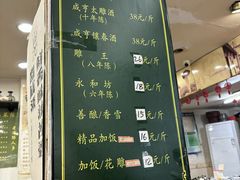 咸亨太雕酒
(十年陈) 38元/斤
咸亨镶春酒 38元/斤
雕王
(八年陈) 元/斤
永和坊
(六年陈) 18元/斤
善酿/香雪 15元/斤
精品加饭 16元/斤
加饭/花雕 12元/斤